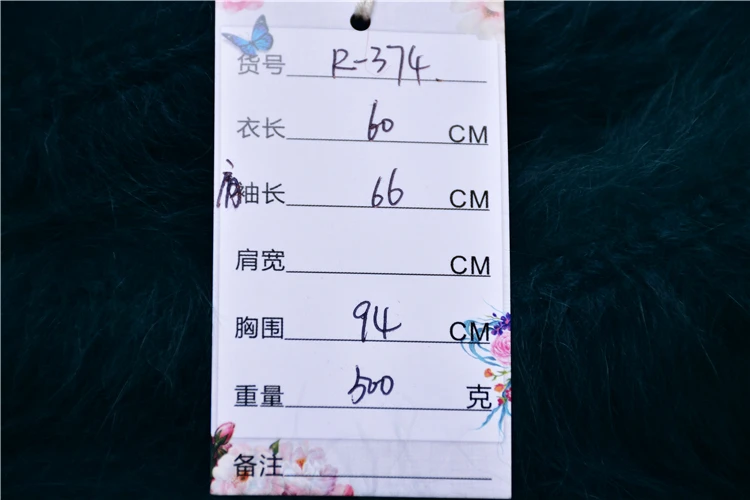 货号 R-374.
衣长 60 CM
肩袖长 66 CM
肩宽 CM
胸围 94 CM
重量 500 克
备注